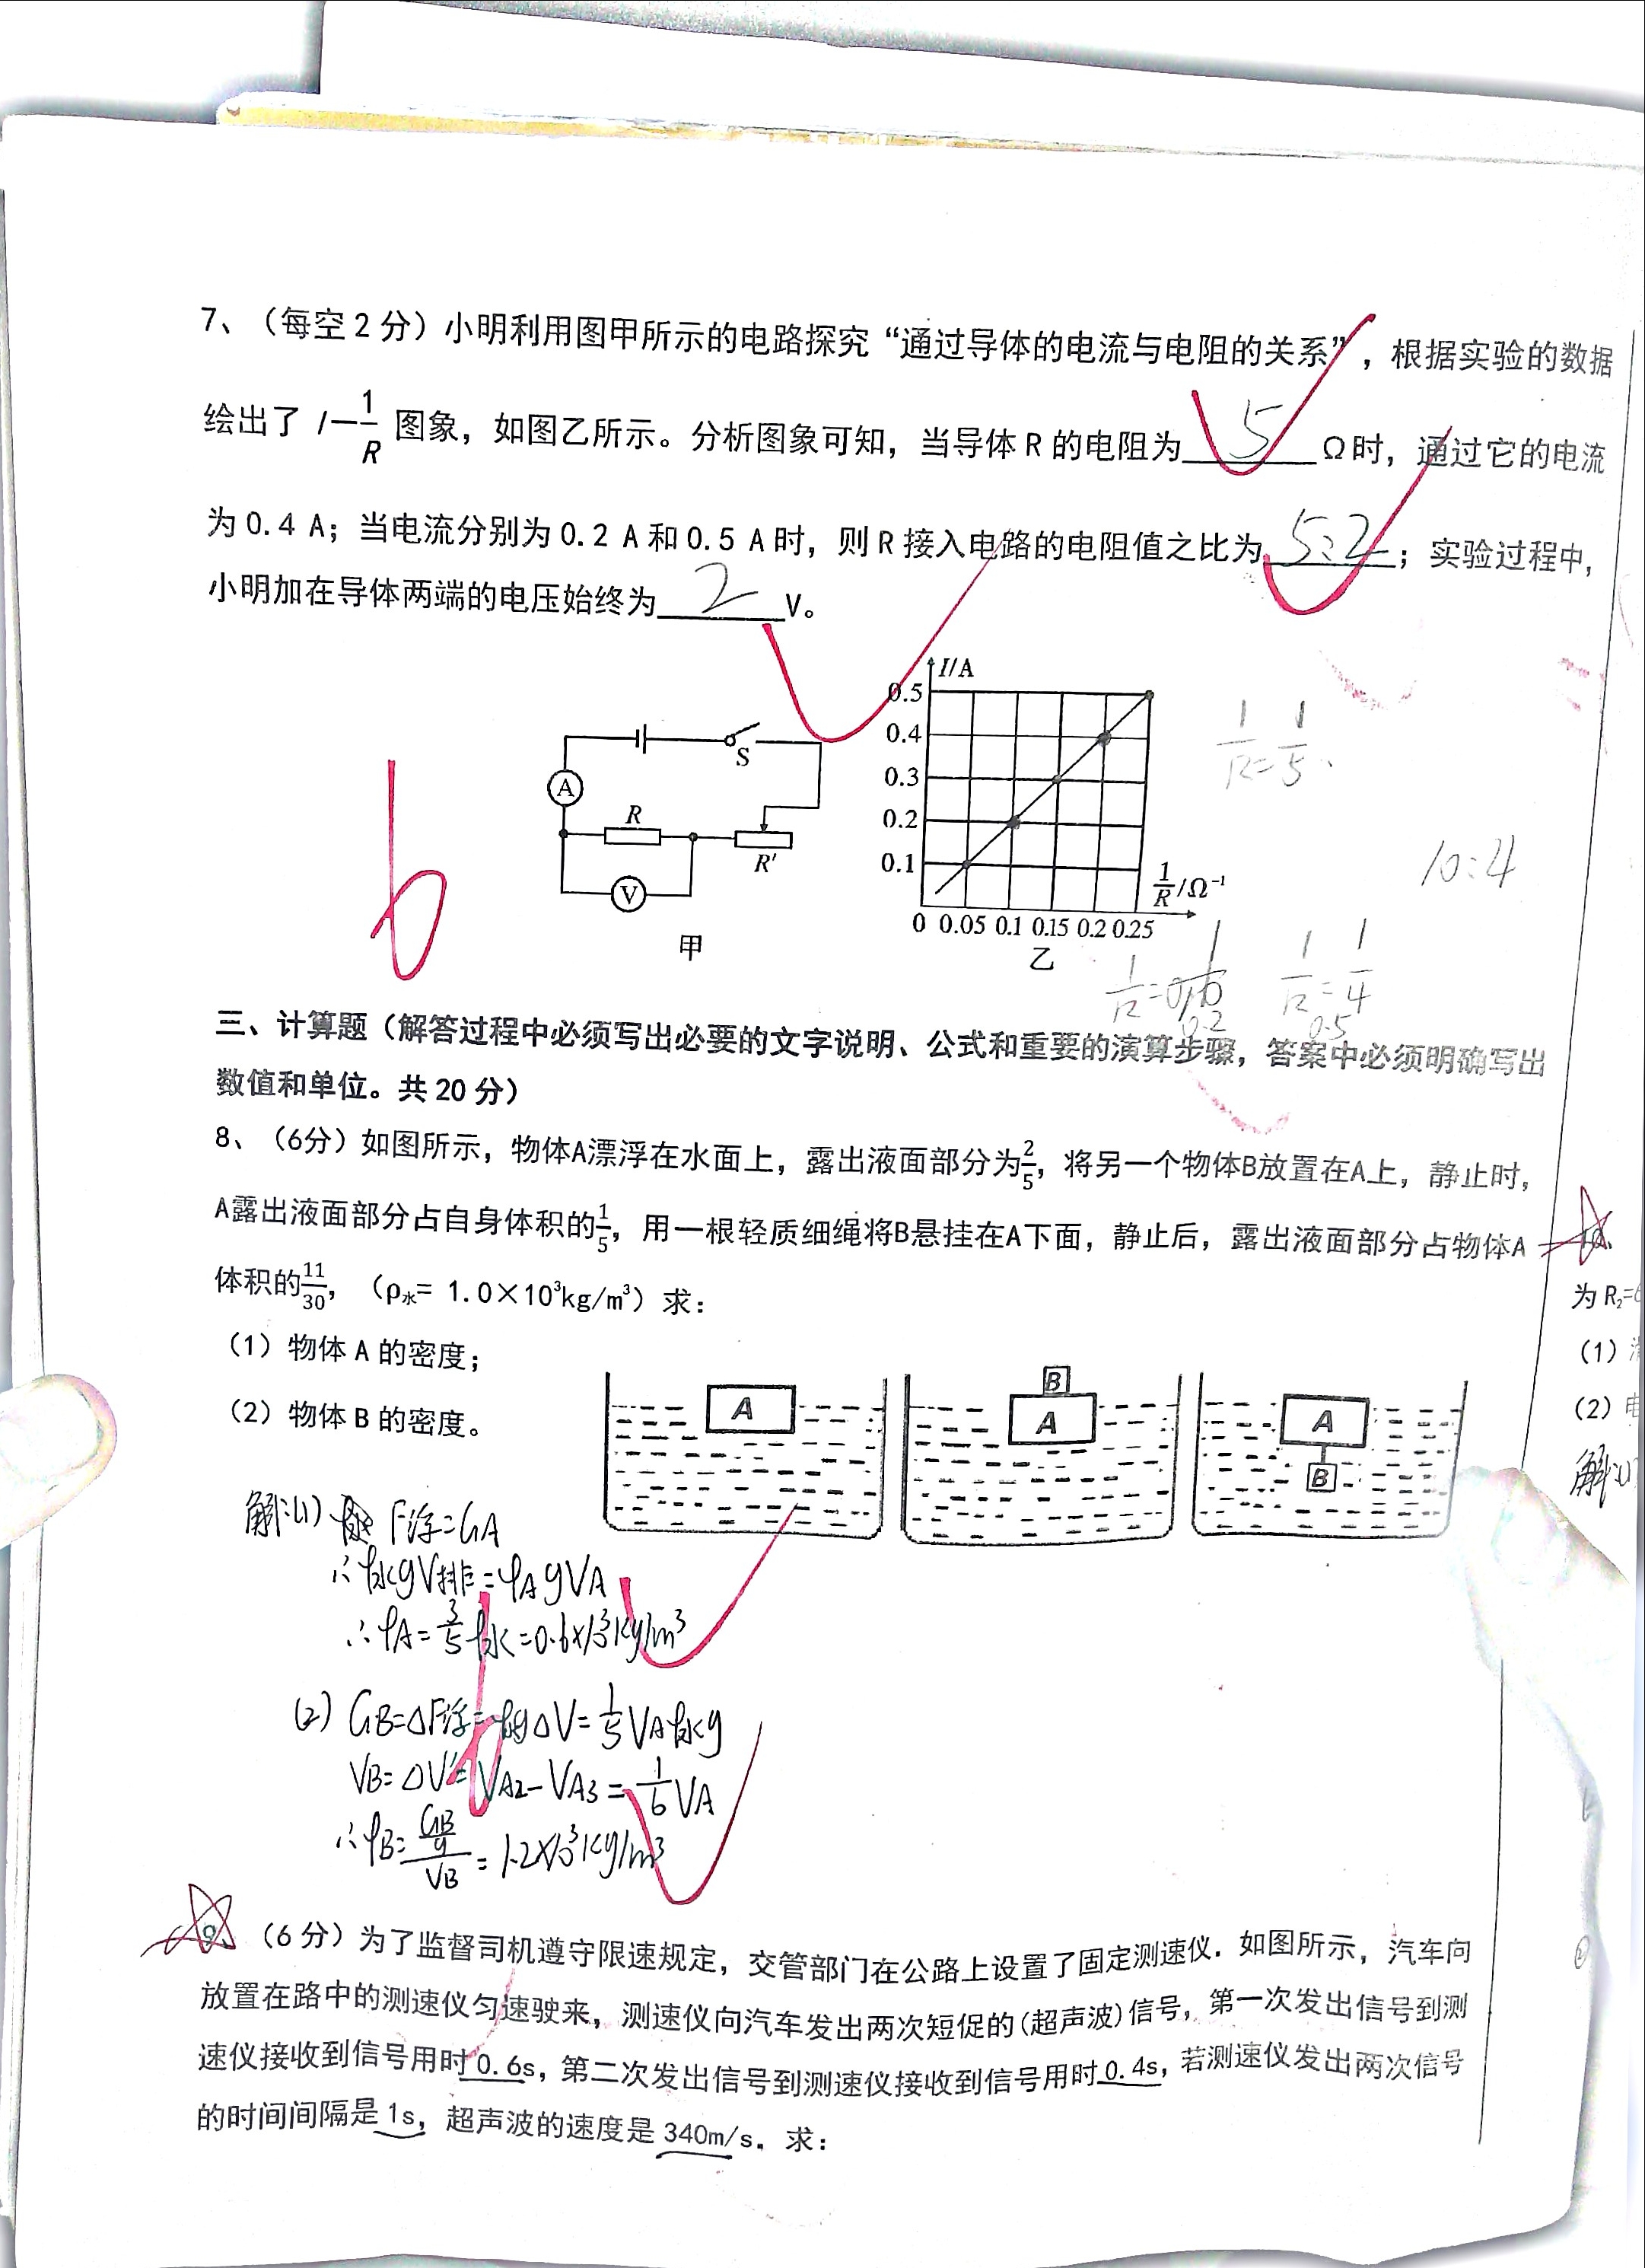 7、（每空2分）小明利用图甲所示的电路探究“通过导体的电流与电阻的关系”，根据实验的数据
绘出了 I—1/R 图象，如图乙所示。分析图象可知，当导体R的电阻为 5 Ω时，通过它的电流
为0.4 A；当电流分别为0.2 A和0.5 A时，则R接入电路的电阻值之比为 5:2 ；实验过程中，
小明加在导体两端的电压始终为 2 V。
I/A
0.5
0.4
0.3
0.2
0.1
0 0.05 0.1 0.15 0.2 0.25
1/R/Ω⁻¹
乙
S
A
R
R'
V
甲
1/R=1/5
10:4
1/R=1/10
0.2
1/R=1/4
0.5
6
三、计算题（解答过程中必须写出必要的文字说明、公式和重要的演算步骤，答案中必须明确写出
数值和单位。共20分）
8、（6分）如图所示，物体A漂浮在水面上，露出液面部分为2/5，将另一个物体B放置在A上，静止时，
A露出液面部分占自身体积的1/5，用一根轻质细绳将B悬挂在A下面，静止后，露出液面部分占物体A
体积的11/30，（ρ水= 1.0×10³kg/m³）求：
（1）物体A的密度；
（2）物体B的密度。
A
B
A
A
B
解:(1) F浮=GA
∴ρ水gV排=ρAgVA
∴ρA=3/5ρ水=0.6×10³kg/m³
(2) GB=ΔF浮=ρ水gΔV=1/5VAρ水g
VB=ΔV'=VA2-VA3=1/6VA
∴ρB=(GB/g)/VB=1.2×10³kg/m³
6
9、（6分）为了监督司机遵守限速规定，交管部门在公路上设置了固定测速仪．如图所示，汽车向
放置在路中的测速仪匀速驶来，测速仪向汽车发出两次短促的(超声波)信号，第一次发出信号到测
速仪接收到信号用时0.6s，第二次发出信号到测速仪接收到信号用时0.4s，若测速仪发出两次信号
的时间间隔是1s，超声波的速度是340m/s．求：
为R₂=6
（1）
（2）
解:(1)